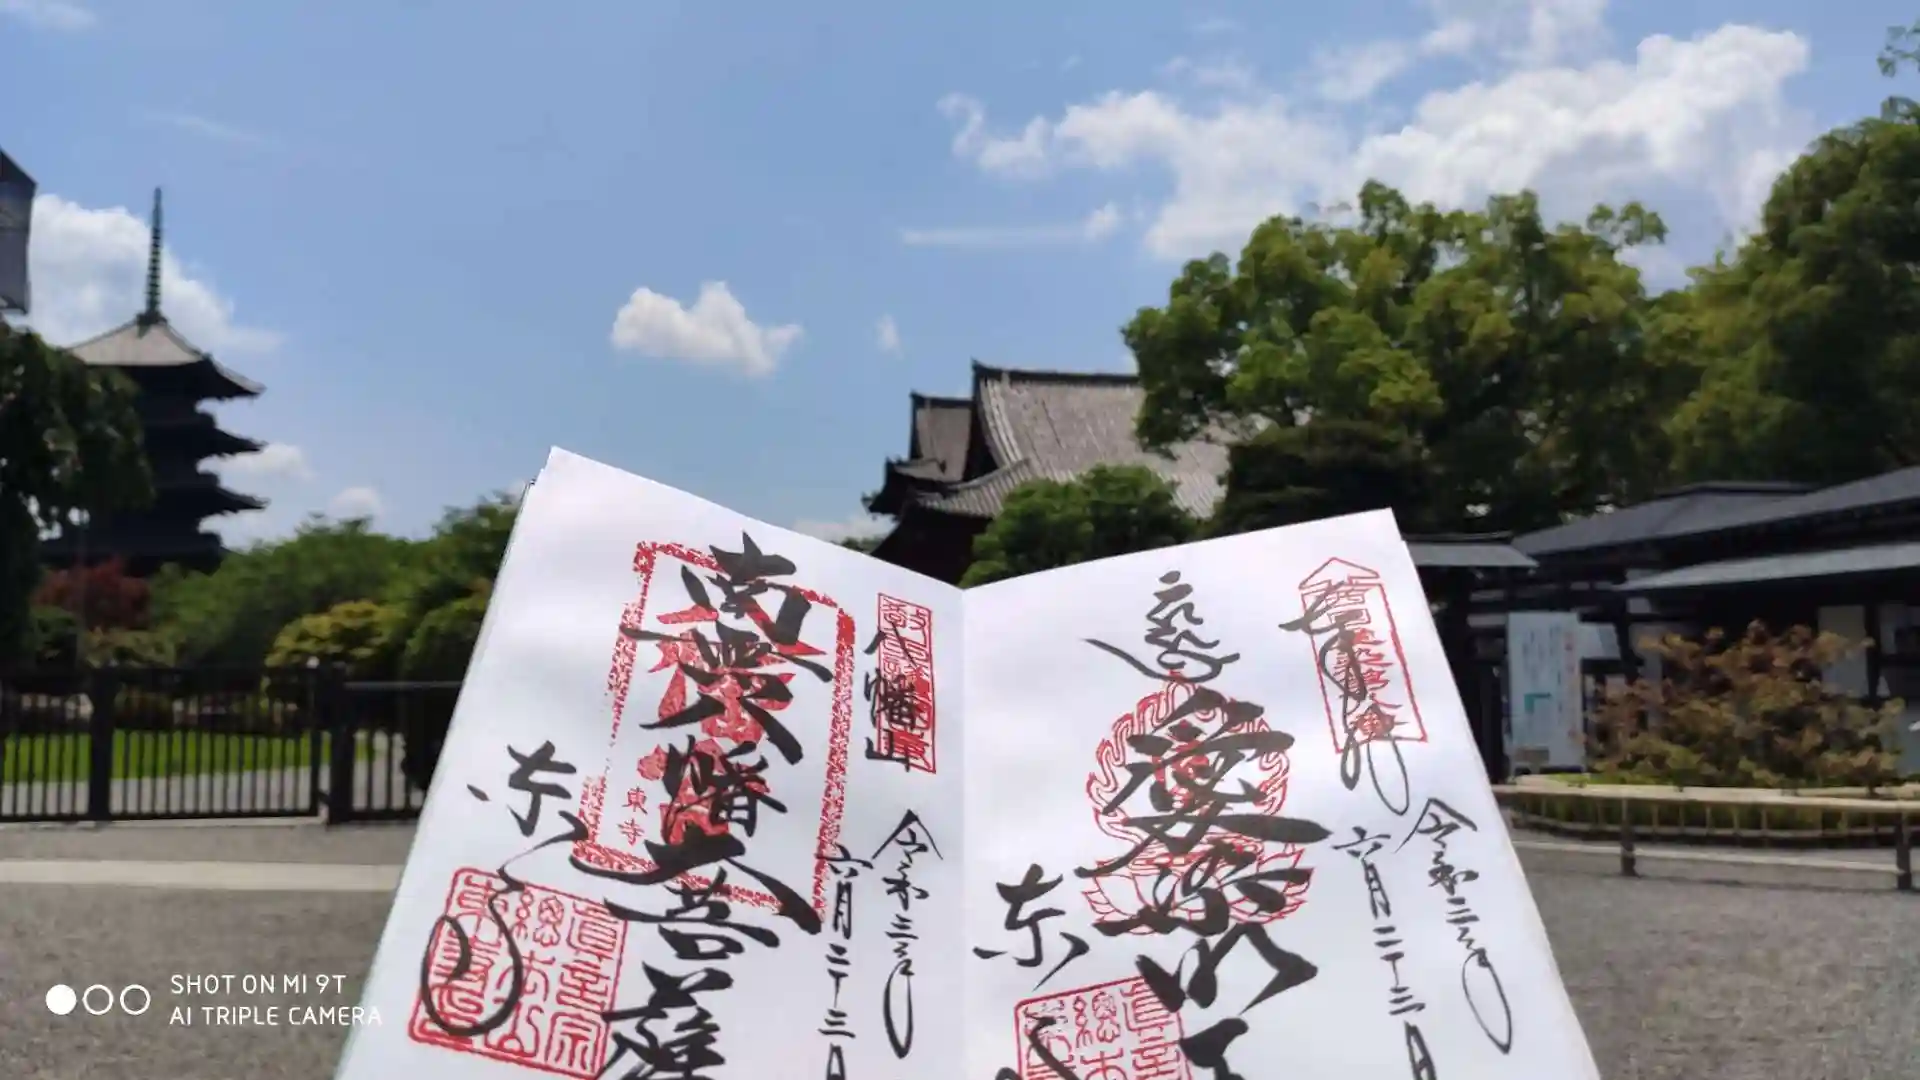 奉拝
令和三年
六月二十三日
愛染明王
東
八幡山
令和三年
六月二十三日
南無八幡大菩薩
東寺
東寺
真言宗
總本山
SHOT ON MI 9T
AI TRIPLE CAMERA